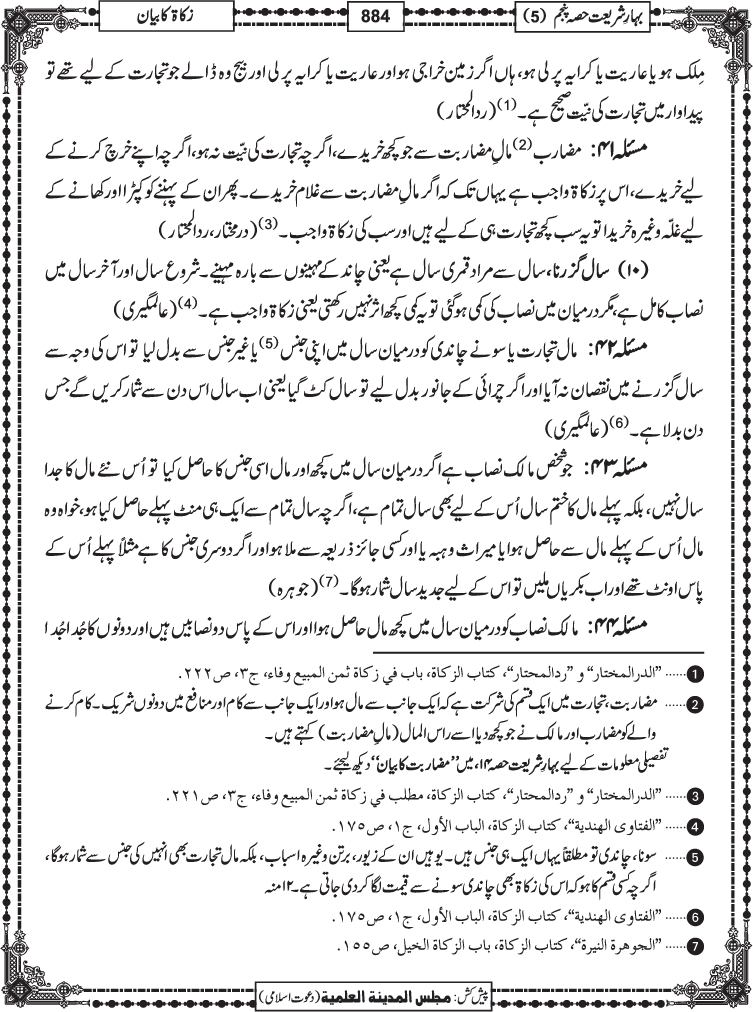 بہارِ شریعت حصہ پنجم (5)
884
زکاۃ کا بیان
مِلک ہو یا عاریت یا کرایہ پر لی ہو، ہاں اگر زمین خراجی ہو اور عاریت یا کرایہ پر لی اور بیج وہ ڈالے جو تجارت کے لیے تھے تو
پیداوار میں تجارت کی نیّت صحیح ہے۔ (1) (ردالمحتار)
مسئلہ ۴۱: مضارب (2) مالِ مضاربت سے جو کچھ خریدے، اگرچہ تجارت کی نیّت نہ ہو، اگرچہ اپنے خرچ کرنے کے
لیے خریدے، اس پر زکاۃ واجب ہے یہاں تک کہ اگر مالِ مضاربت سے غلام خریدے۔ پھر ان کے پہننے کو کپڑا اور کھانے کے
لیے غلّہ وغیرہ خریدا تو یہ سب کچھ تجارت ہی کے لیے ہیں اور سب کی زکاۃ واجب۔ (3) (درمختار، ردالمحتار)
(۱۰) سال گزرنا، سال سے مراد قمری سال ہے یعنی چاند کے مہینوں سے بارہ مہینے۔ شروع سال اور آخر سال میں
نصاب کامل ہے، مگر درمیان میں نصاب کی کمی ہوگئی تو یہ کمی کچھ اثر نہیں رکھتی یعنی زکاۃ واجب ہے۔ (4) (عالمگیری)
مسئلہ ۴۲: مالِ تجارت یا سونے چاندی کو درمیان سال میں اپنی جنس (5) یا غیر جنس سے بدل لیا تو اس کی وجہ سے
سال گزرنے میں نقصان نہ آیا اور اگر چرائی کے جانور بدل لیے تو سال کٹ گیا یعنی اب سال اس دن سے شمار کریں گے جس
دن بدلا ہے۔ (6) (عالمگیری)
مسئلہ ۴۳: جو شخص مالک نصاب ہے اگر درمیان سال میں کچھ اور مال اسی جنس کا حاصل کیا تو اُس نئے مال کا جدا
سال نہیں، بلکہ پہلے مال کا ختم سال اُس کے لیے بھی سال تمام ہے، اگرچہ سال تمام سے ایک ہی منٹ پہلے حاصل کیا ہو، خواہ وہ
مال اُس کے پہلے مال سے حاصل ہوا یا میراث وہبہ یا اور کسی جائز ذریعہ سے ملا ہو اور اگر دوسری جنس کا ہے مثلاً پہلے اُس کے
پاس اونٹ تھے اور اب بکریاں ملیں تو اس کے لیے جدید سال شمار ہوگا۔ (7) (جوہرہ)
مسئلہ ۴۴: مالک نصاب کو درمیان سال میں کچھ مال حاصل ہوا اور اس کے پاس دو نصابیں ہیں اور دونوں کا جُدا جُدا
1 ...... ”الدرالمختار“ و ”ردالمحتار“، کتاب الزکاة، باب في زكاة ثمن المبيع وفاء، ج۳، ص۲۲۲.
2 ...... مضاربت، تجارت میں ایک قسم کی شرکت ہے کہ ایک جانب سے مال ہو اور ایک جانب سے کام اور منافع میں دونوں شریک۔ کام کرنے
والے کو مضارب اور مالک نے جو کچھ دیا اسے راس المال (مالِ مضاربت) کہتے ہیں۔
تفصیلی معلومات کے لیے بہارِ شریعت حصہ ۱۴، میں ”مضاربت کا بیان“ دیکھ لیجئے۔
3 ...... ”الدرالمختار“ و ”ردالمحتار“، كتاب الزكاة، مطلب في زكاة ثمن المبيع وفاء، ج۳، ص۲۲۱.
4 ...... ”الفتاوى الهندية“، كتاب الزكاة، الباب الأول، ج۱، ص۱۷۵.
5 ...... سونا، چاندی تو مطلقاً یہاں ایک ہی جنس ہیں۔ یوہیں ان کے زیور، برتن وغیرہ اسباب، بلکہ مالِ تجارت بھی انہیں کی جنس سے شمار ہوگا،
اگرچہ کسی قسم کا ہو کہ اس کی زکاۃ بھی چاندی سونے سے قیمت لگا کر دی جاتی ہے۔ ۱۲ منہ
6 ...... ”الفتاوى الهندية“، كتاب الزكاة، الباب الأول، ج۱، ص۱۷۵.
7 ...... ”الجوهرة النيرة“، كتاب الزكاة، باب الزكاة الخيل، ص۱۵۵.
پیش کش: مجلس المدینة العلمیة (دعوت اسلامی)